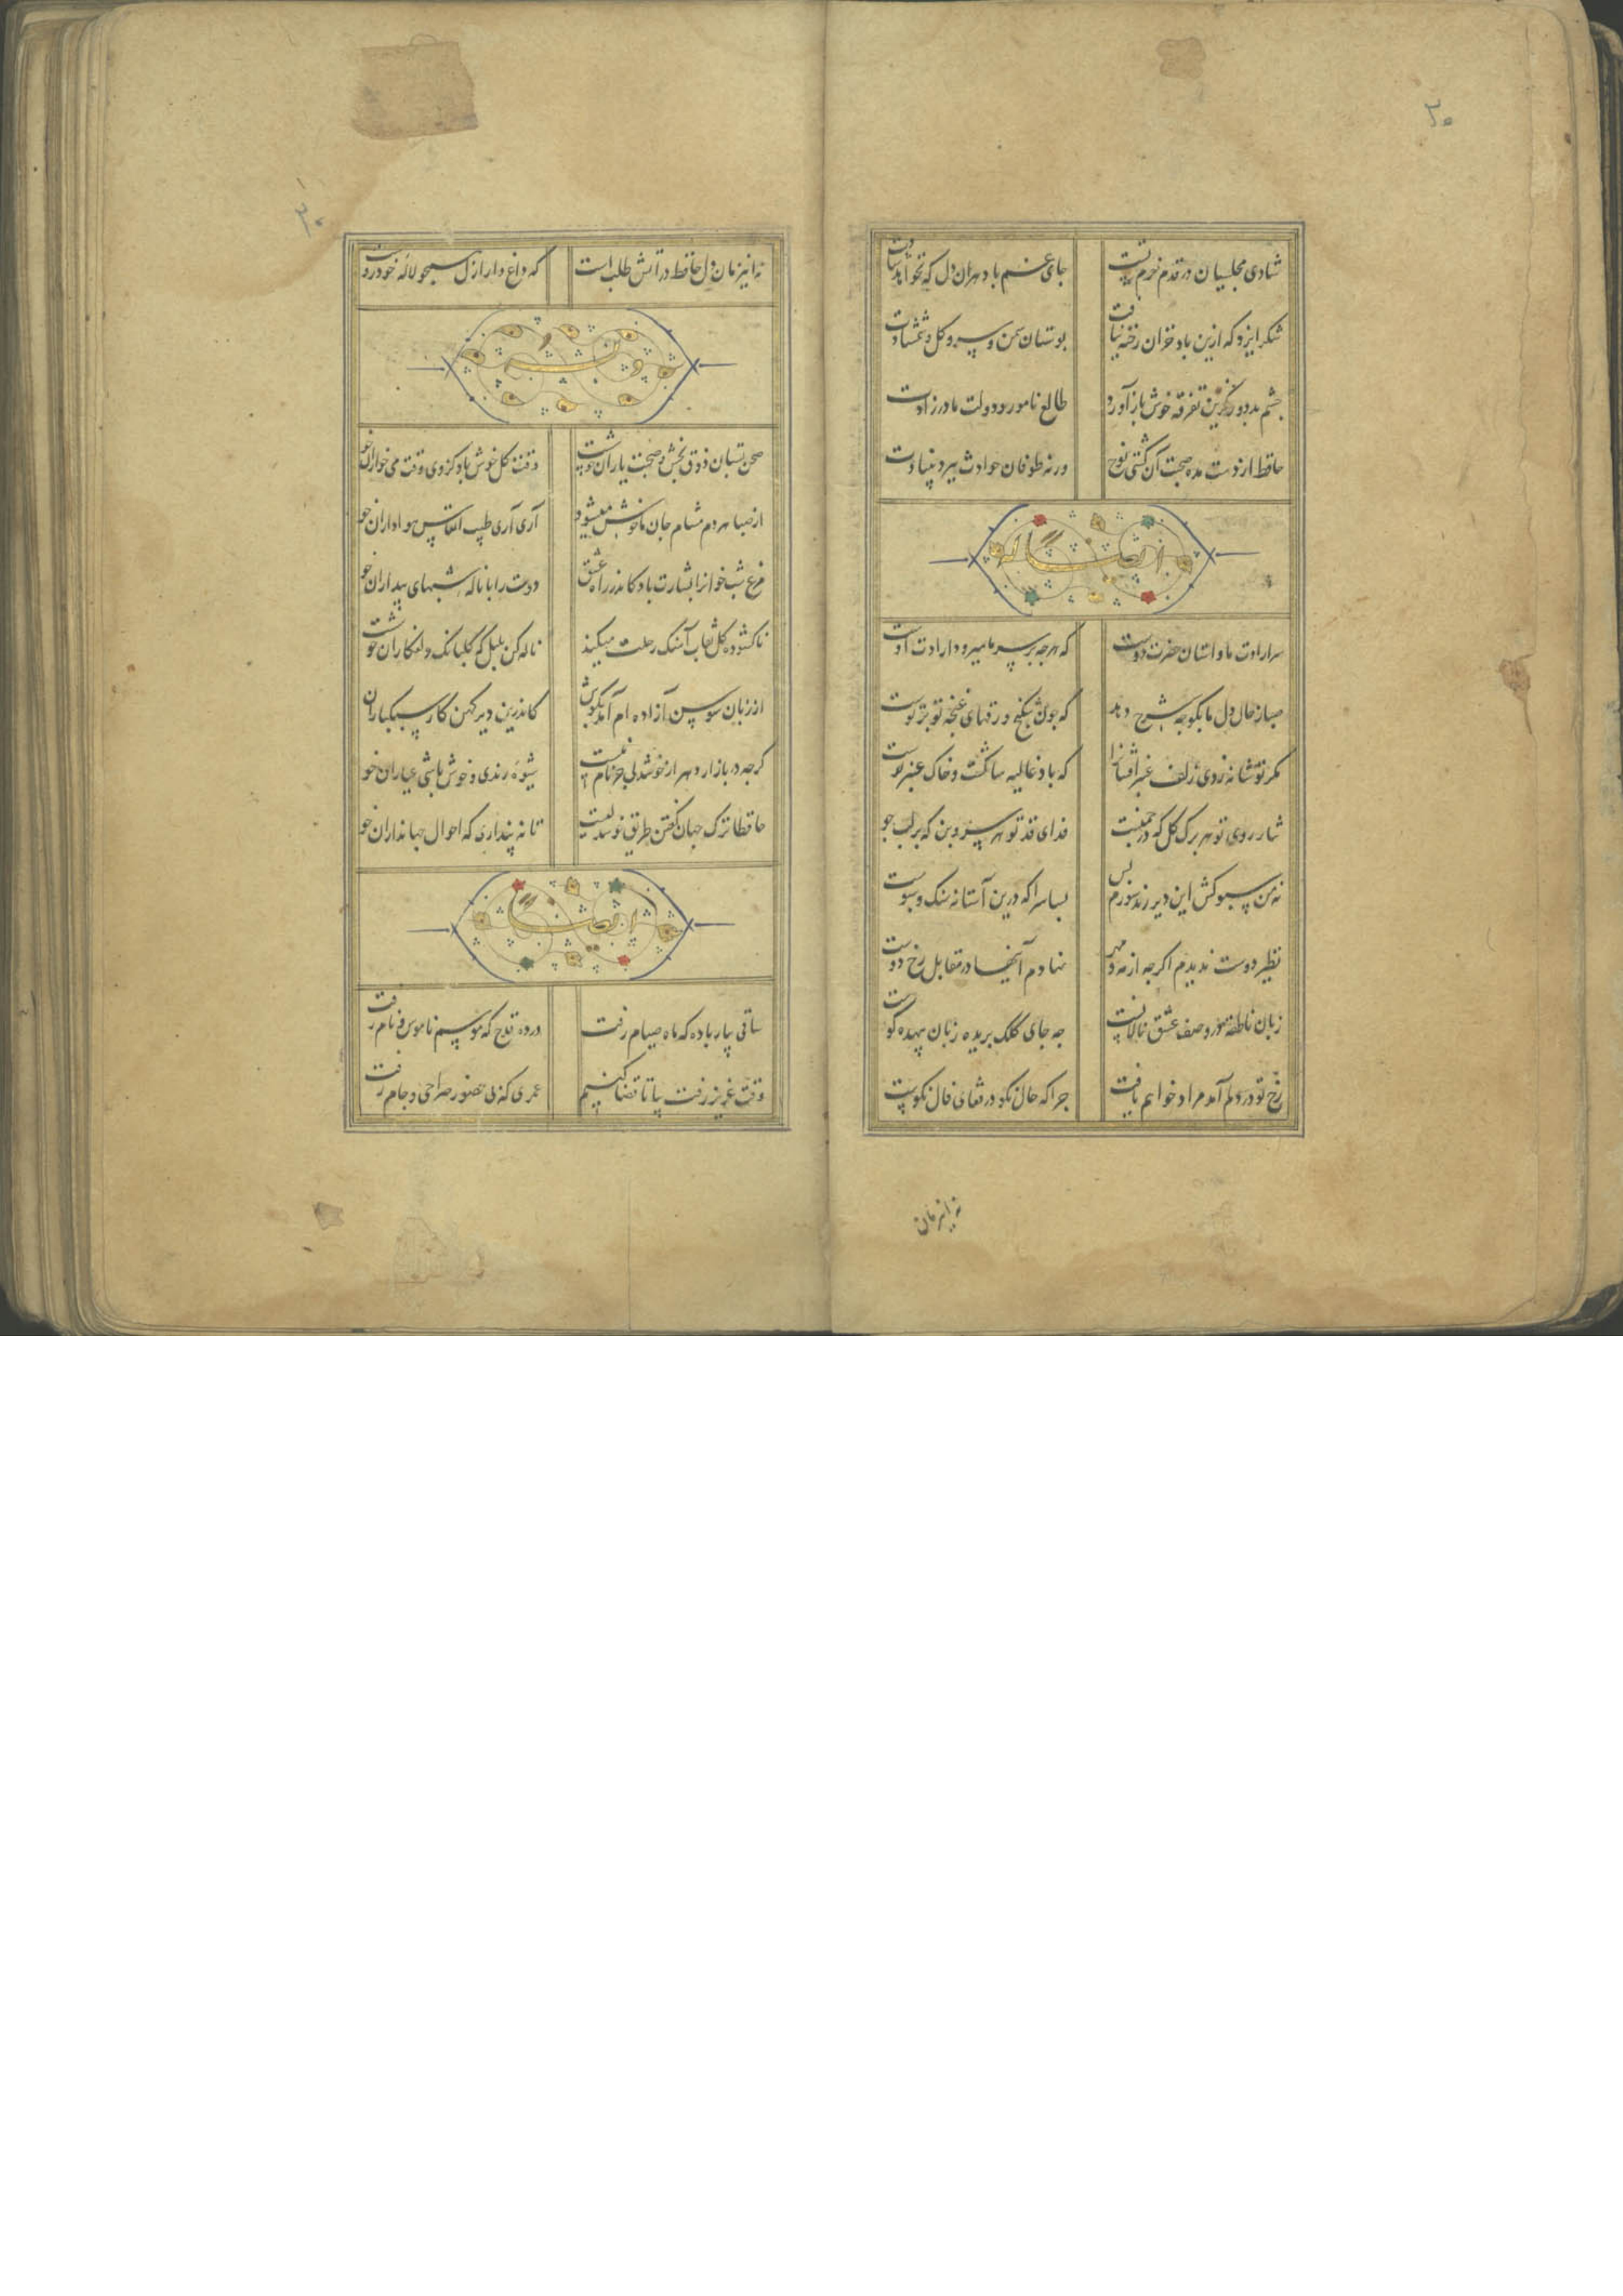 ۳۰
شادی مجلسیان در قدم خرم تست جای غم باد هران دل که نخواهد شادت
شکر ایزد که ازین باد خزان رخنه نیافت بوستان سمن و سرو و کل و شمشادت
چشم بد دور کزین تفرقه خوش باز آورد طالع نامور و دولت مادرزادت
حافظ از دست مده صحبت آن کشتی نوح ورنه طوفان حوادث ببرد بنیادت
سر ارادت ما و استان حضرت دوست که هرجه بر سر ما میرود ارادت اوست
صبا ز حال دل ما بکو چه شرح دهد که چون شکنج ورقهای غنچه تو بر توست
مکر تو شانه زدی زلف عنبر افشانرا که باد غالیه سا کشت و خاک عنبر بوست
نثار روی تو هر برک کل که در جمنست فدای قد تو هر سرو بن که بر لب جو
نه من سبو کش این دیر رند سوزم و بس بسا سرا که درین آستانه سنک و سبوست
نظیر دوست ندیدم اکرجه از مه و مهر نهادم آینها در مقابل رخ دوست
زبان ناطقه در وصف عشق ما لالست جه جای کلک بریده زبان بیهده کوست
رخ تو در دلم آمد مراد خواهم یافت جرا که حال نکو در قفای فال نکوست
نه اینزمان
۳۰
نه اینزمان دل حافظ در آتش طلب است که داغ دار ازل همجو لاله خودروست
صحن بستان ذوق بخش و صحبت یاران خوشست وقت کل خوش باد کز وی وقت می خواران خو
از صبا هر دم مشام جان ما خوش میشود آری آری طیب انفاس هواداران خو
مرغ شب خوانرا بشارت باد کاندر راه عشق دوست را با ناله شبهای بیداران خو
ناکشوده کل نقاب آهنک رحلت میکند ناله کن بلبل که کلبانک دلفکاران خوشست
از زبان سوسن آزاده ام آمد بکوش کاندرین دیر کهن کار سبکباران
کرجه در بازار دهر از خوشدلی جز نام نیست شیوه رندی و خوش باشی عیاران خو
حافظا ترک جهان کفتن طریق خوشدلیست تا نه پنداری که احوال جهانداران خو
ساقی بیار باده که ماه صیام رفت درده قدح که موسم ناموس و نام رفت
وقت عزیز رفت بیا تا قضا کنیم عمری که بی حضور صراحی و جام رفت